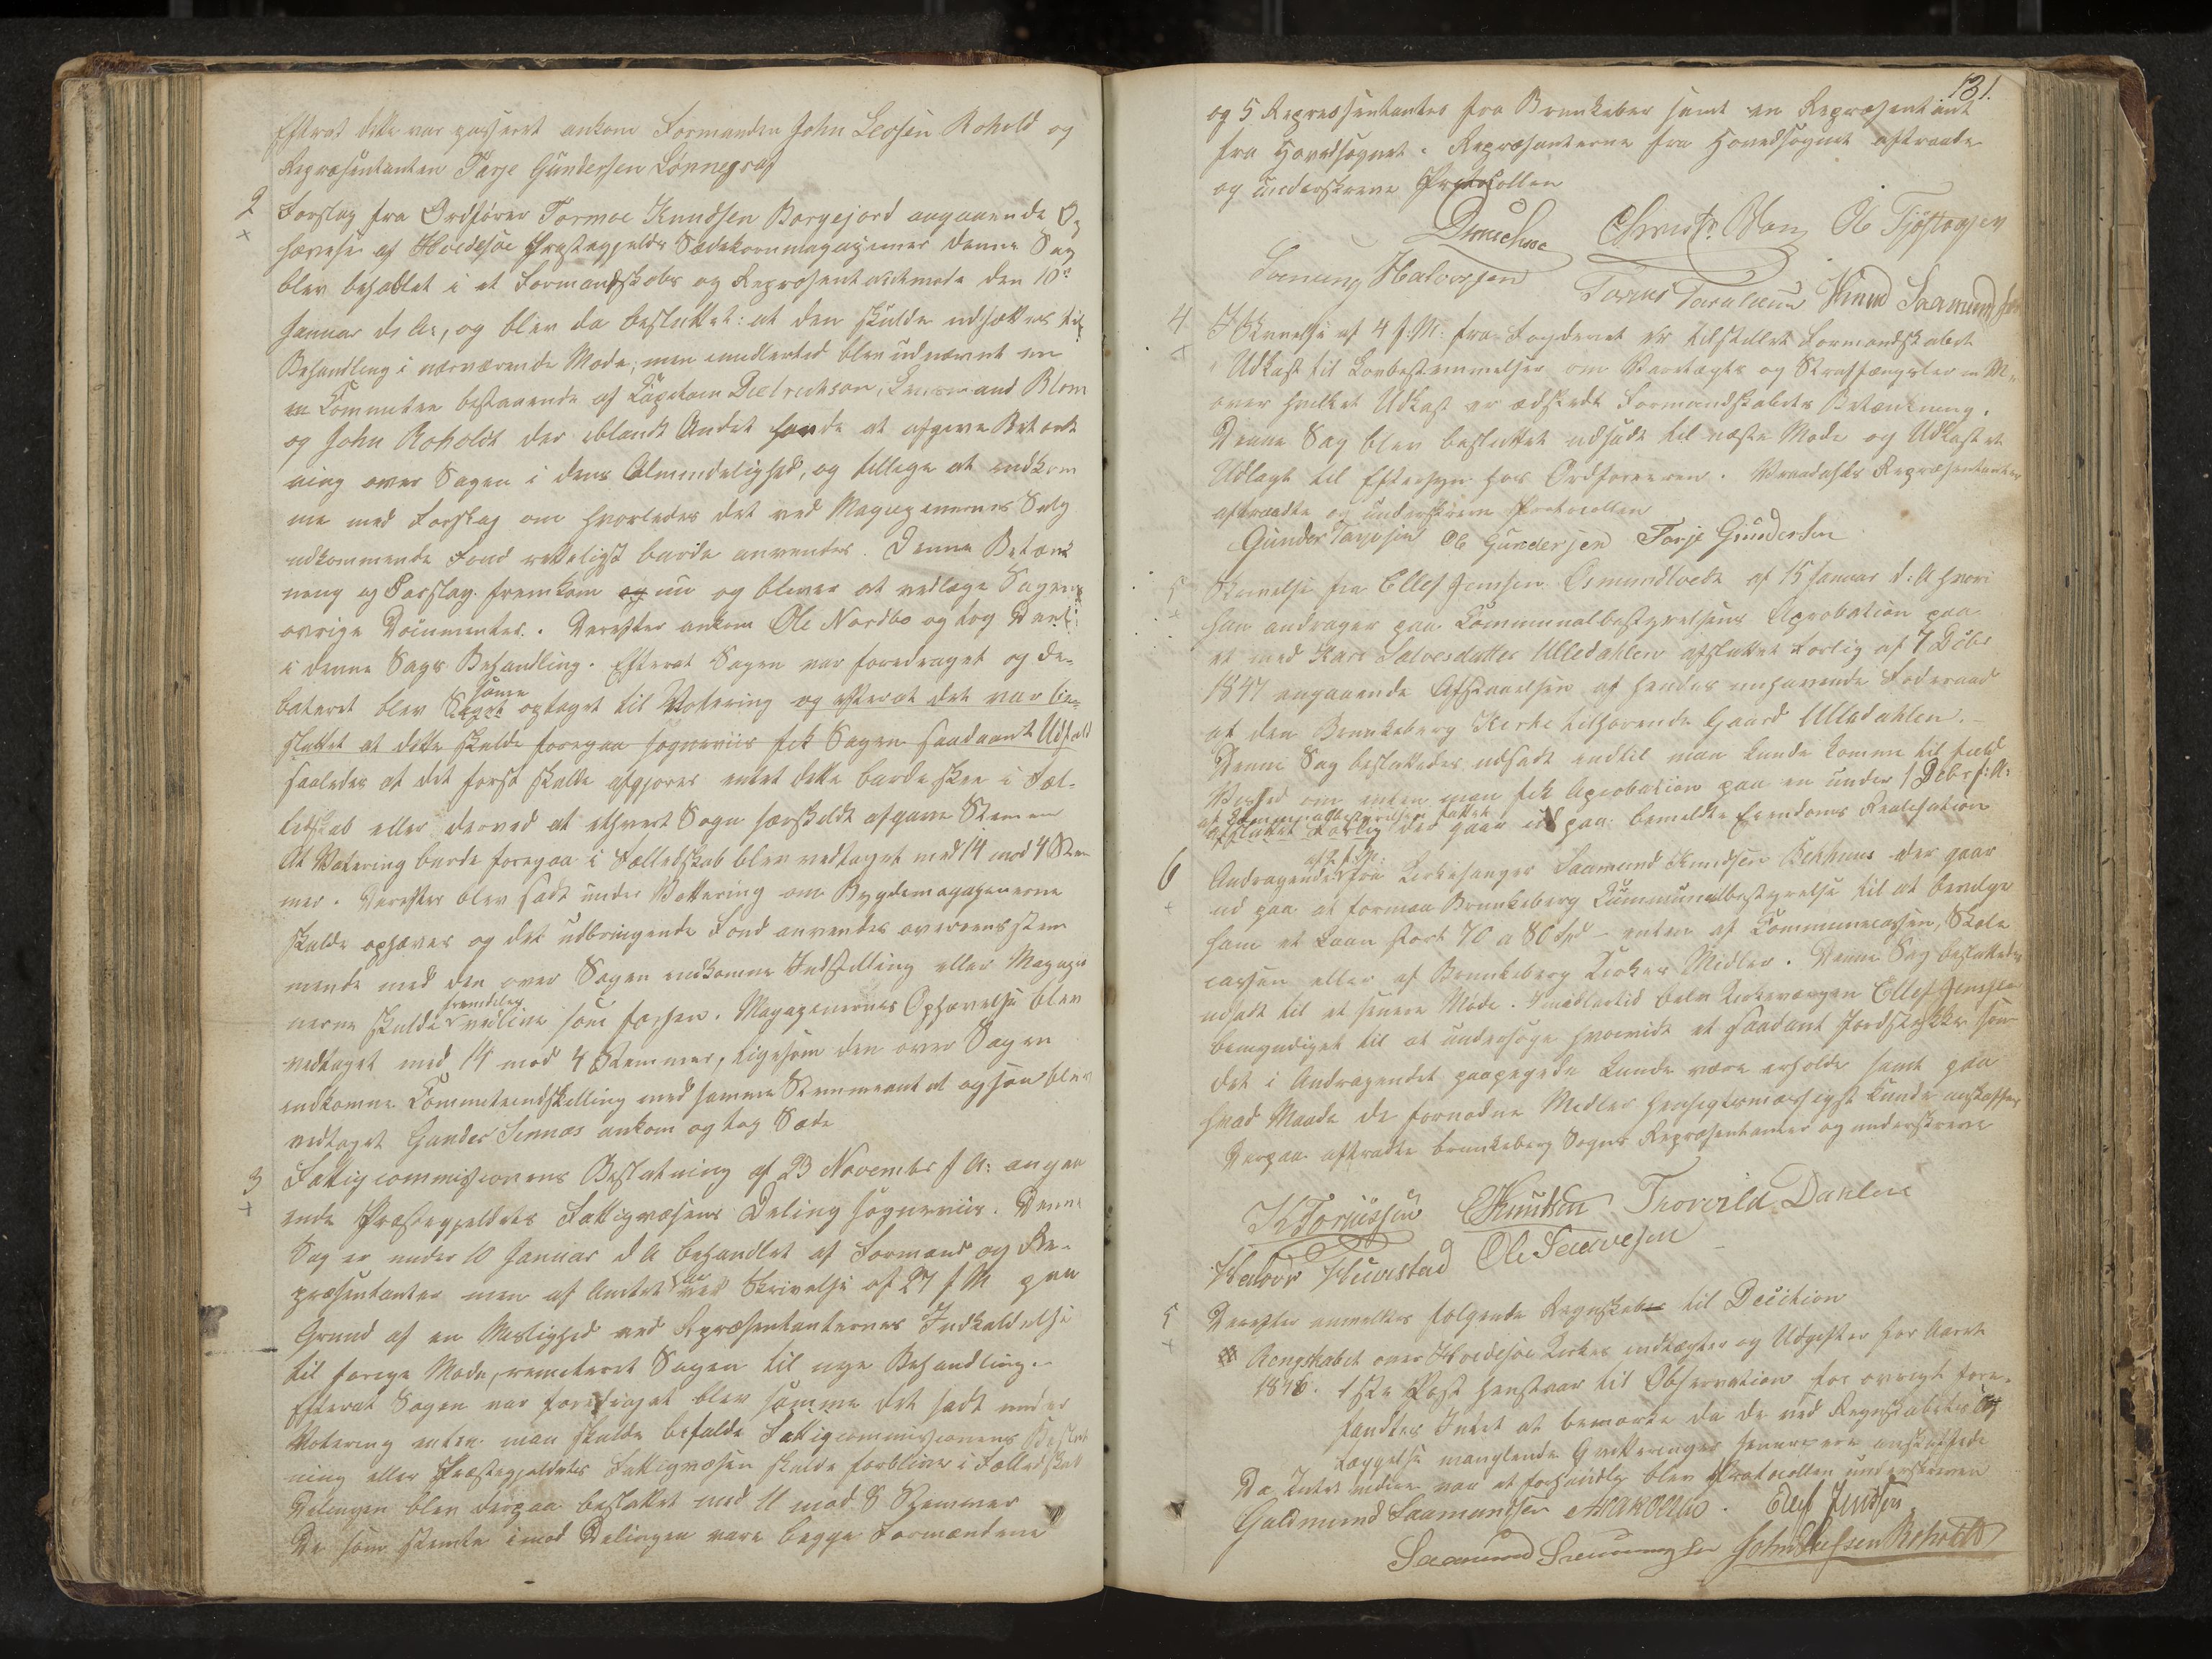 Efterat dette var passeret ankom Formanden John Leosen Rohold og
Repræsentanten Tarje Gundersen Lønnegrav
2 Forslag fra Ordfører Tormoe Knudsen Borgejord angaaende Op
hævelse af Hvidesøe Præstegjelds Sædekornmagaziner denne Sag
blev behandlet i et Formandskabs og Repræsentantmøde den 10de
Januar d. A., og blev da besluttet: at den skulde udsættes til
Behandling i nærværende Møde, men imidlertid blev udnævnt en
en Committee bestaaende af Kapitain Dietrichson, Lensmand Blom
og John Roholdt der iblandt Andet havde at afgive Betænk
ning over Sagen i dens Almindelighed, og tillige at indkom
me med Forslag om hvorledes det ved Magazinernes Salg
udkommende Fond retteligst burde anvendes. Denne Betænk
ning og Forslag fremkom og nu og bliver at vedlægge Sagens
øvrige Documenter. Derefter ankom Ole Nordbo og tog Deel
i denne Sags Behandling. Efterat Sagen var foredraget og de-
bateret blev Sagen samme optaget til Votering og efterat det var be-
sluttet at dette skulde foregaa sogneviis fik Sagen saadant Udfald
saaledes at det først skulle afgjøres entet dette burde skee i Fæl-
ledskab eller derved at ethvert Sogn særskildt afgave Stemmer
At Votering burde foregaa i Fælledskab blev vedtaget med 14 mod 4 Stem
mer. Derefter blev sadt under Vottering om Bygdemagazinerne
skulde ophæves og det udbringende Fond anvendes overeensstem
mende med den over Sagen indkomne Indstilling eller Magazi
nerne skulde fremdeles vedblive som forhen. Magazinernes Ophævelse blev
vedtaget med 14 mod 4 Stemmer, ligesom den over Sagen
indkomne Committeeindstilling med samme Stemmeantal ogsaa blev
vedtaget Gunder Sinnæs ankom og tog Sæde
3 Fattigcommissionens Beslutning af 23 November f. A. angaa
ende Præstegjeldets Fattigvæsens Deling sogneviis. Denne
Sag er under 10 Januar d A behandlet af Formænd og Re-
præsentanter men af Amtet ved Skrivelse af 27 f M paa
Grund af en Mislighed ved Repræsentanternes Indkaldelse
til forrige Møde, remiteret Sagen til nye Behandling.
Efterat Sagen var foredraget blev samme det sadt under
Votering enten man skulde befalde Fattigcommissionens Beslut
ning eller Præstegjeldets Fattigvæsen skulde forblive i Fælledskab
Delingen blev derpaa besluttet med 11 mod 8 Stemmer
De som stemte imod Delingen vare begge Formændene
131.
og 5 Repræsentanter fra Brunkeberg samt en Repræsentant
fra Hovedsognet. Repræsenterne fra Hovedsognet aftraadte
og underskreve Protocollen
Ole Tjøstolvsen
Sveinung Halvorsen Knud Saamundsen
4 I Skrivelse af 4 f. M. fra Fogderiet er tilstillet Formandskabet
Udkast til Lovbestemmelser om Varetægts og Straffængsler m M.
over hvilket Udkast er æsket Formandskabets Betænkning.
Denne Sag blev besluttet udsadt til næste Møde og Udkastet
Udlagt til Eftersyn hos Ordføreren. Vraadahls Repræsentanter
aftraadte og underskreve Protocollen
Gunder Tarjesen Ole Gundersen Tarje Gundersen
5 Skrivelse fra Ellef Jensen Osmundtvedt af 15 Januar d: A hvori
han andrager paa Communalbestyrelsens Aprobation paa
et med Kari Salvesdatter Ulledahlen afsluttet Forlig af 7 Decbr
1847 angaaende Afstaaelsen af hendes inehavende Føderaad
af den Brunkeberg Kirke tilhørende Gaard Ulledahlen.
Denne Sag besluttedes udsadt indtil man kunde komme til fuld
Vished om enten man fik Aprobation paa en under 1 Decbr f: A:
af Communalbestyrelsen fattet
afsluttet Forlig der gaar ud paa bemeldte Eiendoms Realisation
6 Andragende af 2 f. M. fra Kirkesanger Saamund Knudsen Bekhuus der gaar
ud paa at formaa Brunkeberg Kummunalbestyrelse til at bevilge
ham et Laan stort 70 a 80 Spd - enten af Communecassen, Skole
cassen eller af Brunkeberg Kirkes Midler. Denne Sag besluttedes
udsadt til et senere Møde. Imidlertid belev Kirkeværgen Ellef Jensen
bemyndiget til at undersøge hvorvidt et saadant Jordstykke som
det i Andragendet paapegede kunde være erholde samt paa
hvad Maade de fornødne Midler hensigtsmæssigst kunde anskaffes
Derpaa aftradte brunkeberg Sogns Repræsentanter og underskreve
K Torjussen E Knudsen Thorvild Dahlen
Halvor Ole
5 Derefter anmeldtes følgende Regnskaber til Decition
Rengskabet over Hvidesøe Kirkes indtægter og Udgifter for Aaret
1846. 1ste Post henstaar til Observation for øvrigt fore-
fandtes Intet at bemærke da de ved Regnskabets
læggelse manglende Qvitteringer senere ere anskaffede
Da Intet videre var at forhandle blev Protocollen underskreven
Guldmund Saamundsen Ellef Jensen
Saamund John Leosen Roholdt